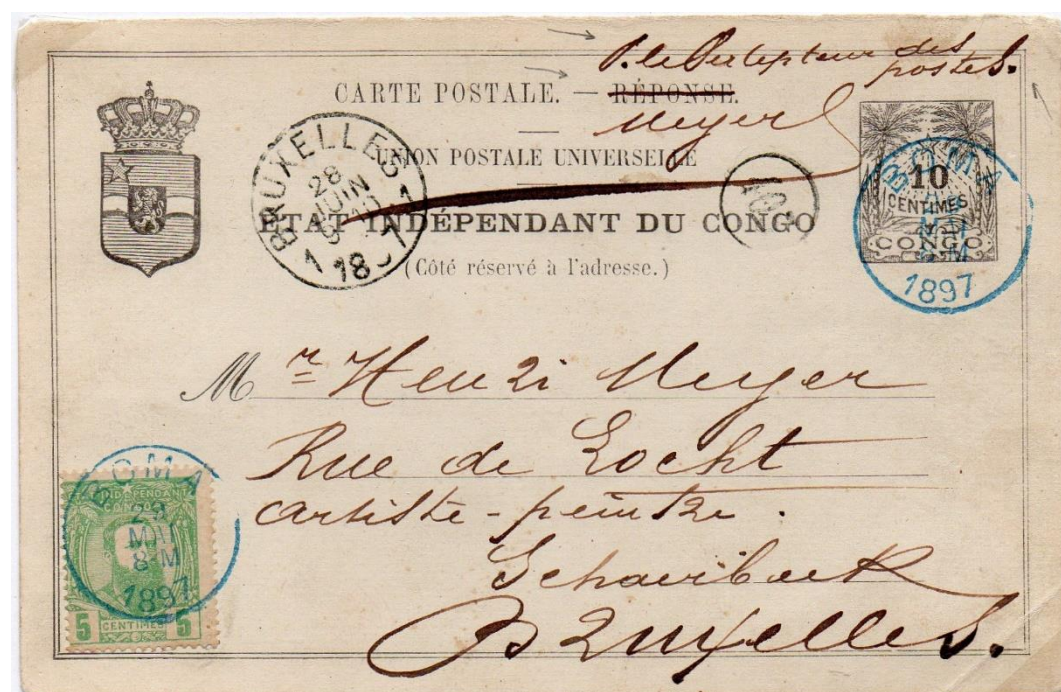 P. le Percepteur des
postes.
CARTE POSTALE. — RÉPONSE.
Meyer
UNION POSTALE UNIVERSELLE
ÉTAT INDÉPENDANT DU CONGO
(Côté réservé à l'adresse.)
BRUXELLES 1
28
JUIN
1897
10
CENTIMES
CONGO
BOMA
8-M
1897
Mr Henri Meyer
Rue de Locht
artiste-peintre.
Schaerbeek
Bruxelles.
INDÉPENDANT
CONGO
BOMA
29
MAI
8-M
1897
5 CENTIMES 5